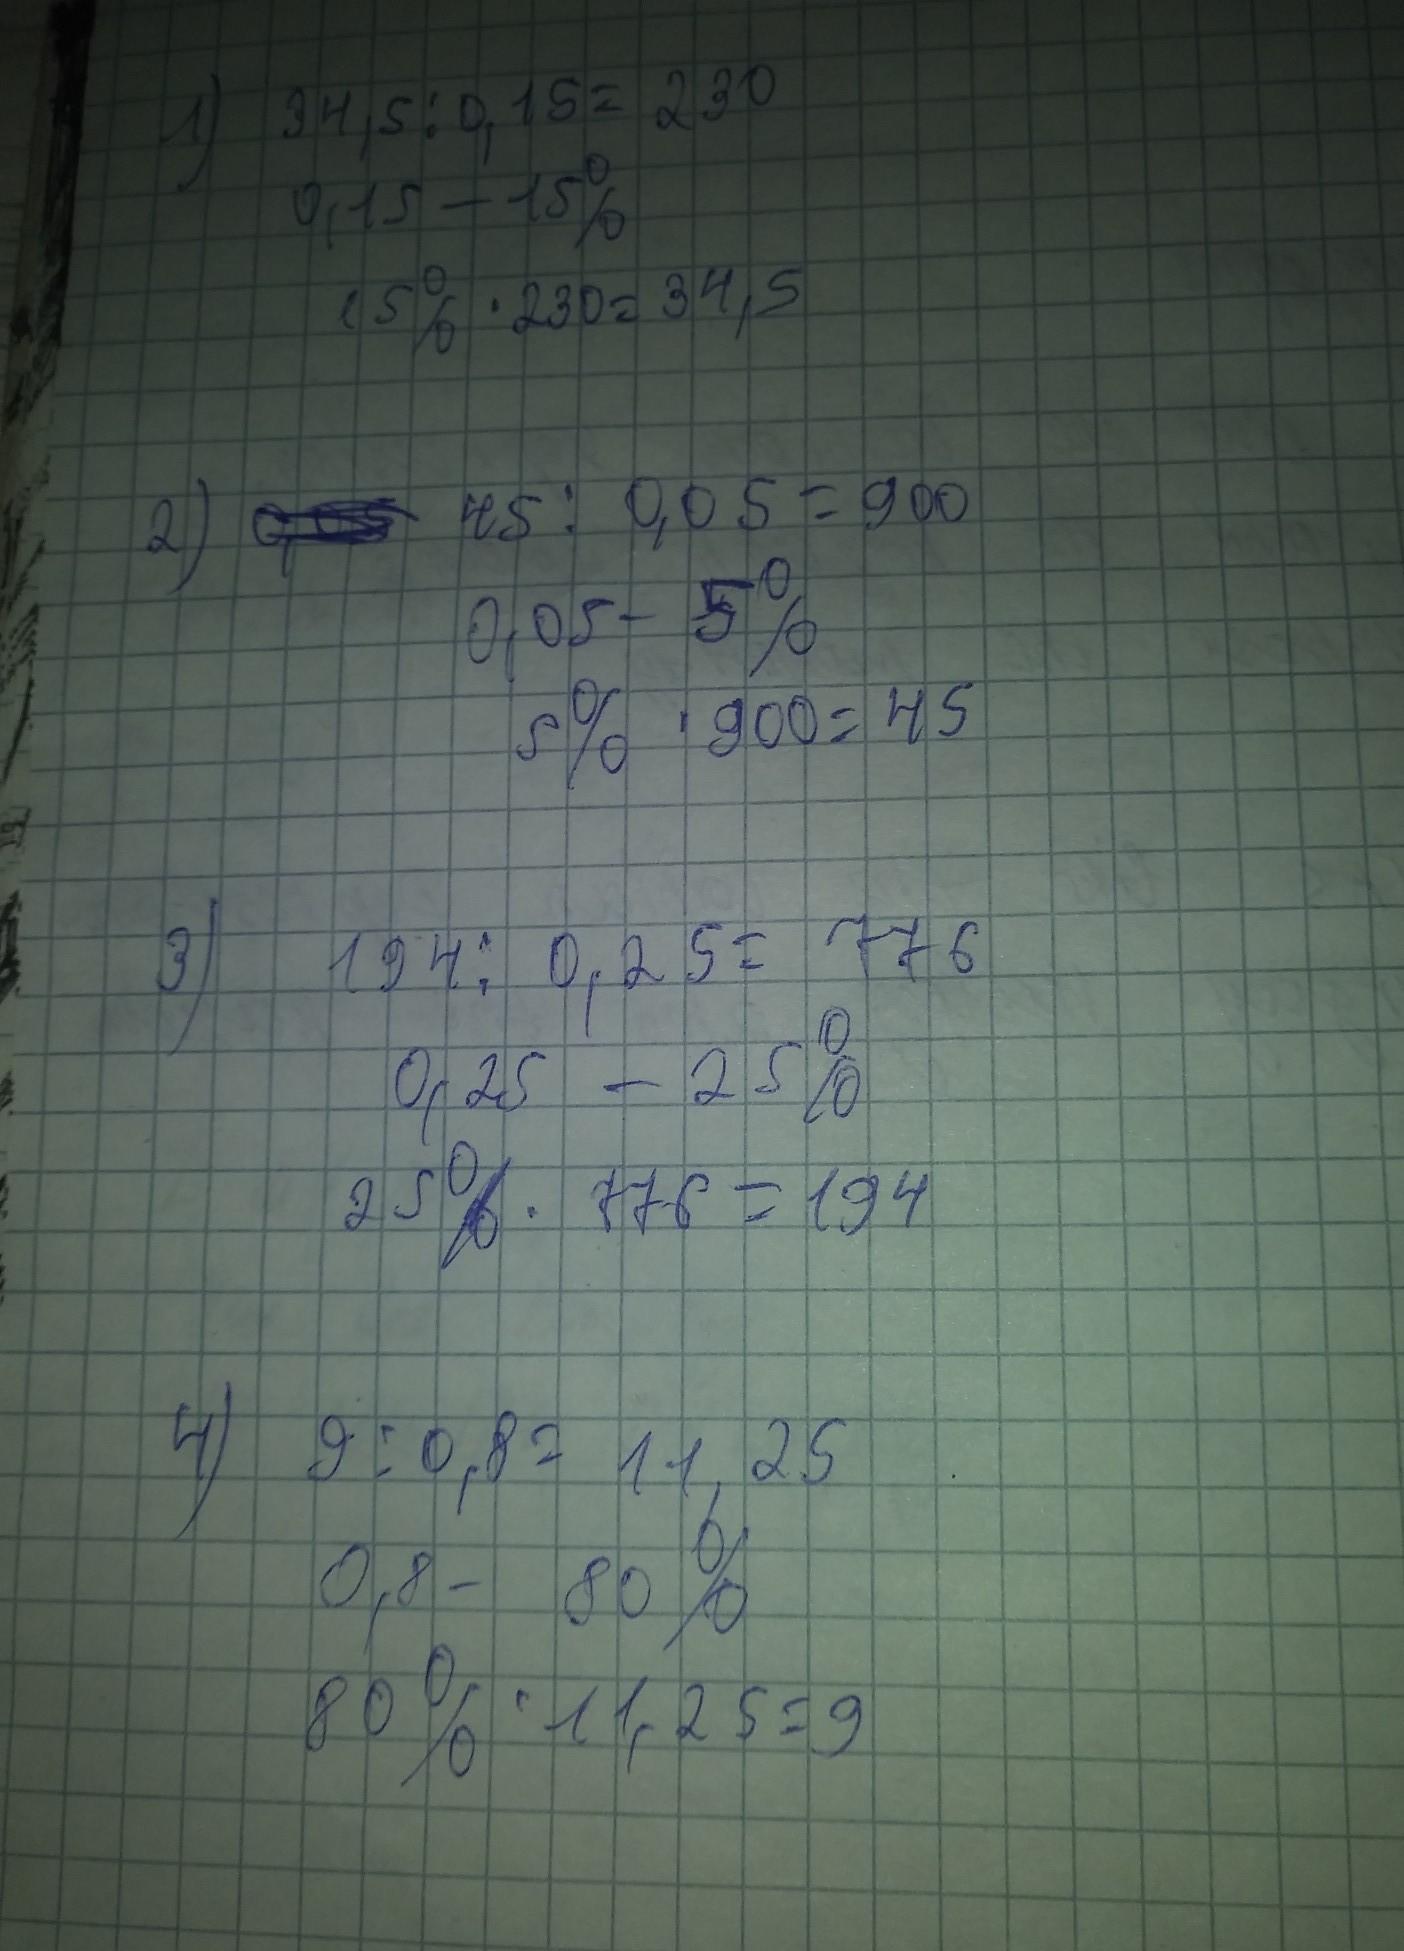 1) 34,5:0,15=230
0,15-15%
15%·230=34,5
2) 45:0,05=900
0,05-5%
5%·900=45
3) 194:0,25=776
0,25-25%
25%·776=194
4) 9:0,8=11,25
0,8-80%
80%·11,25=9